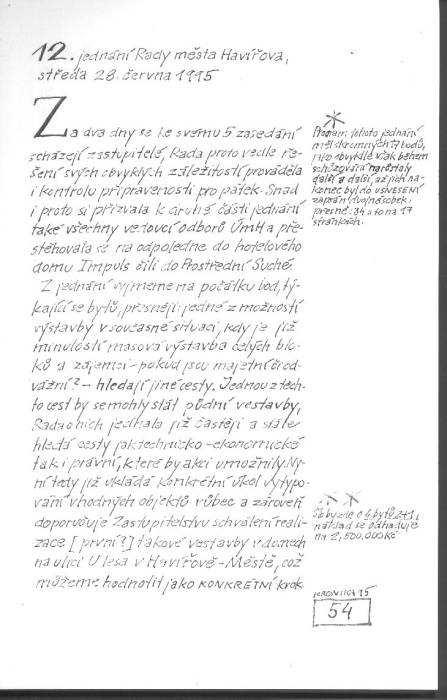 12. jednání Rady města Havířova,
středa 28. června 1995
Za dva dny se ke svému 5 zasedání
scházejí zastupitelé, Rada proto vedle ře-
šení svých obvyklých záležitostí prováděla
i kontrolu připravenosti pro pátek. Snad
i proto si přizvala k druhé části jednání
také všechny vedoucí odborů ÚmH a pře-
stěhovala se na odpoledne do hotelového
domu Impuls čili do Prostřední Suché.
Z jednání vyjmeme na počátku bod, tý-
kající se bytů, přesněji: jedné z možností
výstavby v současné situaci, kdy je již
minulostí masová výstavba celých blo-
ků a zájemci - pokud jsou majetní či od-
vážní? - hledají jiné cesty. Jednou z těch-
to cest by se mohly stát půdní vestavby,
Rada o nich jednala již častěji a stále
hledá cesty jak technicko-ekonomické
tak i právní, které by akci umožnily. Ny-
ní tedy již vkládá konkrétní úkol vytypo-
vání vhodných objektů vůbec a zároveň
doporučuje Zastupitelstvu schválení reali-
zace [první?] takové vestavby v domech
na ulici U lesa v Havířově-Městě, což
můžeme hodnotit jako KONKRÉTNÍ krok
*
Program tohoto jednání
měl skromných 17 bodů,
jako obvykle však během
schůzování narůstaly
další a další, až jich na-
konec byl do usnesení
zapsán dvojnásobek:
přesně: 34 a to na 17
stránkách.
**
Šlo by zde o 6 bytů 2+1,
náklad se odhaduje
na 2,500.000 Kč
KRONIKA 95
54